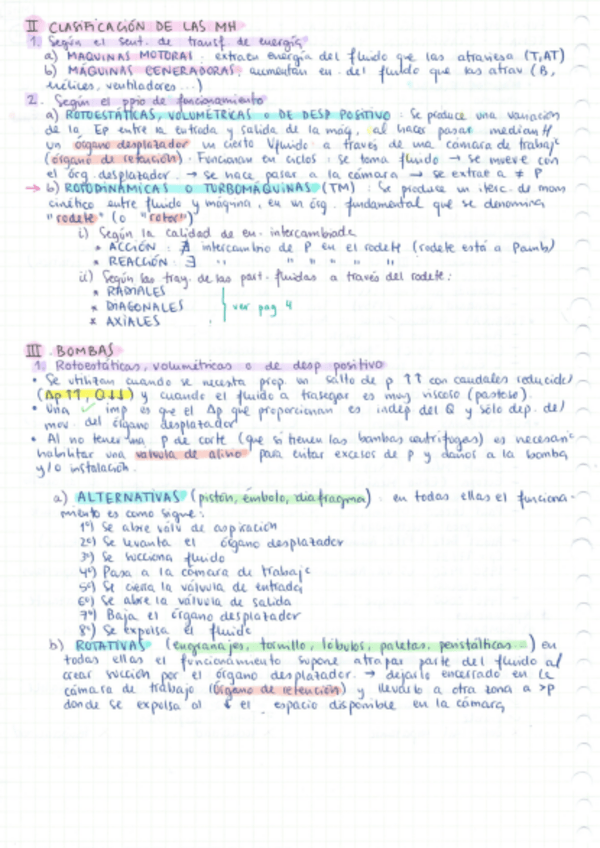 II CLASIFICACIÓN DE LAS MH
1. Según el sent. de transf. de energía
a) MÁQUINAS MOTORAS: extraen energía del fluido que las atraviesa (T, AT)
b) MÁQUINAS GENERADORAS, aumentan en. del fluido que las atrav (B,
hélices, ventiladores...)
2. Según el ppio de funcionamiento
a) ROTOESTÁTICAS, VOLUMÉTRICAS O DE DESP POSITIVO: Se produce una variación
de la Ep entre la entrada y salida de la máq, al hacer pasar mediante
un órgano desplazador un cierto Vfluido a través de una cámara de trabajo
(órgano de retención). Funcionan en ciclos: se toma fluido → se mueve con
el órg. desplazador → se hace pasar a la cámara → se extrae a ≠ P
→ b) ROTODINÁMICAS O TURBOMÁQUINAS (TM): Se produce un iterc. de mom
cinético entre fluido y máquina, en un órg. fundamental que se denomina
"rodete" (o "rotor")
i) Según la calidad de en. intercambiada
* ACCIÓN: ∄ intercambio de P en el rodete (rodete está a Pamb)
* REACCIÓN: ∃ " " " " " "
ii) Según las tray. de las part. fluidas a través del rodete:
* RADIALES
* DIAGONALES } ver pag 4
* AXIALES
III. BOMBAS
1. Rotoestáticas, volumétricas o de desp positivo
• Se utilizan cuando se necesita prop. un salto de p ↑↑ con caudales reducidos
(Δp↑↑, Q↓↓) y cuando el fluido a trasegar es muy viscoso (pastoso).
• Una imp es que el Δp que proporcionan es indep del Q y sólo dep. del
mov. del órgano desplazador
• Al no tener una P de corte (que sí tienen las bombas centrífugas) es necesario
habilitar una válvula de alivio para evitar excesos de P y daños a la bomba
y/o instalación.
a) ALTERNATIVAS (pistón, émbolo, diafragma): en todas ellas el funciona-
miento es como sigue:
1º) Se abre válv de aspiración
2º) Se levanta el órgano desplazador
3º) Se succiona fluido
4º) Pasa a la cámara de trabajo
5º) Se cierra la válvula de entrada
6º) Se abre la válvula de salida
7º) Baja el órgano desplazador
8º) Se expulsa el fluido
b) ROTATIVAS (engranajes, tornillo, lóbulos, paletas, peristálticas...) en
todas ellas el funcionamiento supone atrapar parte del fluido al
crear succión por el órgano desplazador → dejarlo encerrado en la
cámara de trabajo (órgano de retención) y llevarlo a otra zona a >P
donde se expulsa al ↓ el espacio disponible en la cámara